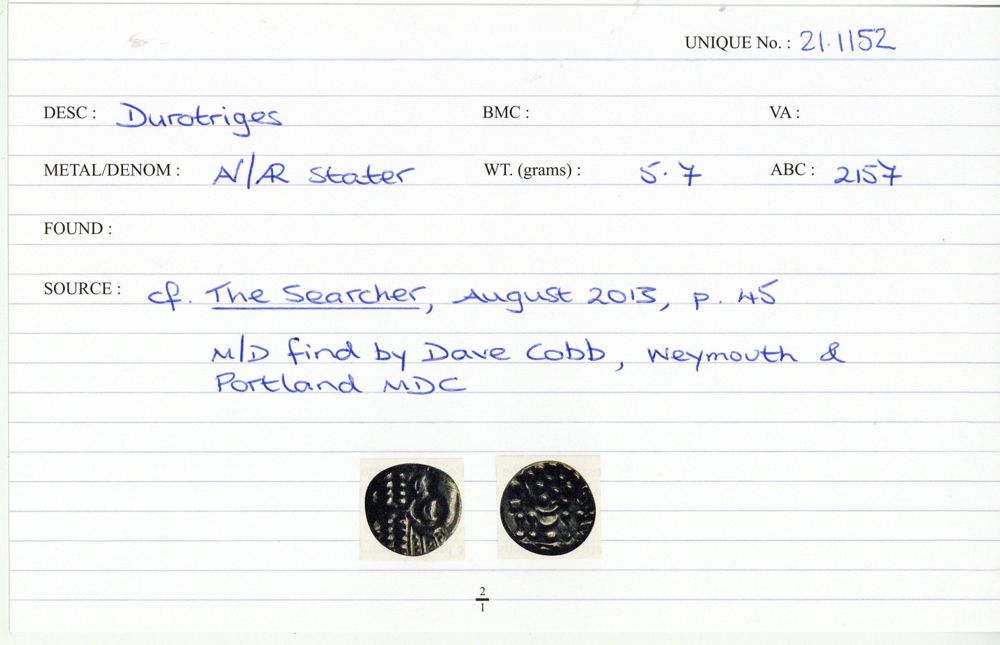 UNIQUE No. : 21.1152
DESC : Durotriges BMC : VA :
METAL/DENOM : N/AR stater WT. (grams) : 5.7 ABC : 2157
FOUND :
SOURCE : cf. The Searcher, August 2013, p. 45
M/D find by Dave Cobb, Weymouth &
Portland MDC
2
1